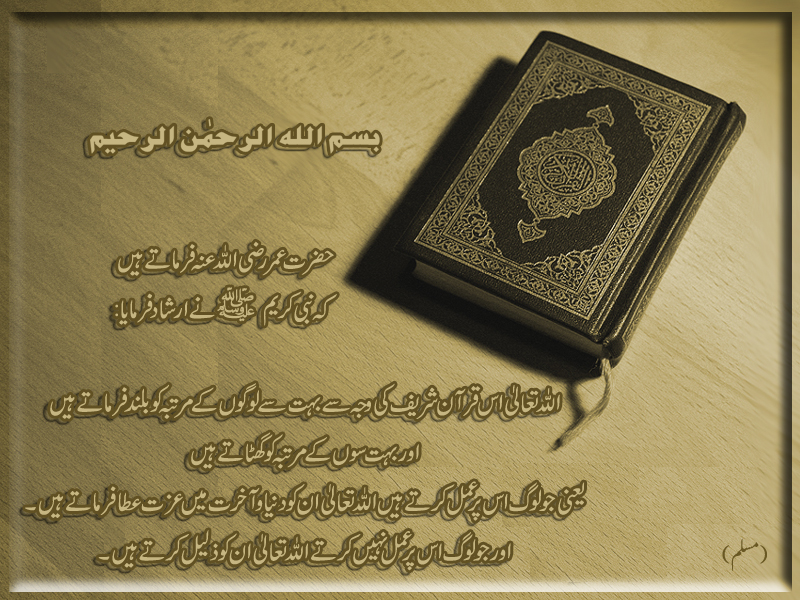 بسم الله الرحمٰن الرحیم
حضرت عمر رضی اللہ عنہ فرماتے ہیں
کہ نبی کریم ﷺ نے ارشاد فرمایا:
اللہ تعالیٰ اس قرآن شریف کی وجہ سے بہت سے لوگوں کے مرتبہ کو بلند فرماتے ہیں
اور بہت سوں کے مرتبہ کو گھٹاتے ہیں
یعنی جو لوگ اس پر عمل کرتے ہیں اللہ تعالیٰ ان کو دنیا و آخرت میں عزت عطا فرماتے ہیں۔
اور جو لوگ اس پر عمل نہیں کرتے اللہ تعالیٰ ان کو ذلیل کرتے ہیں۔
(مسلم)